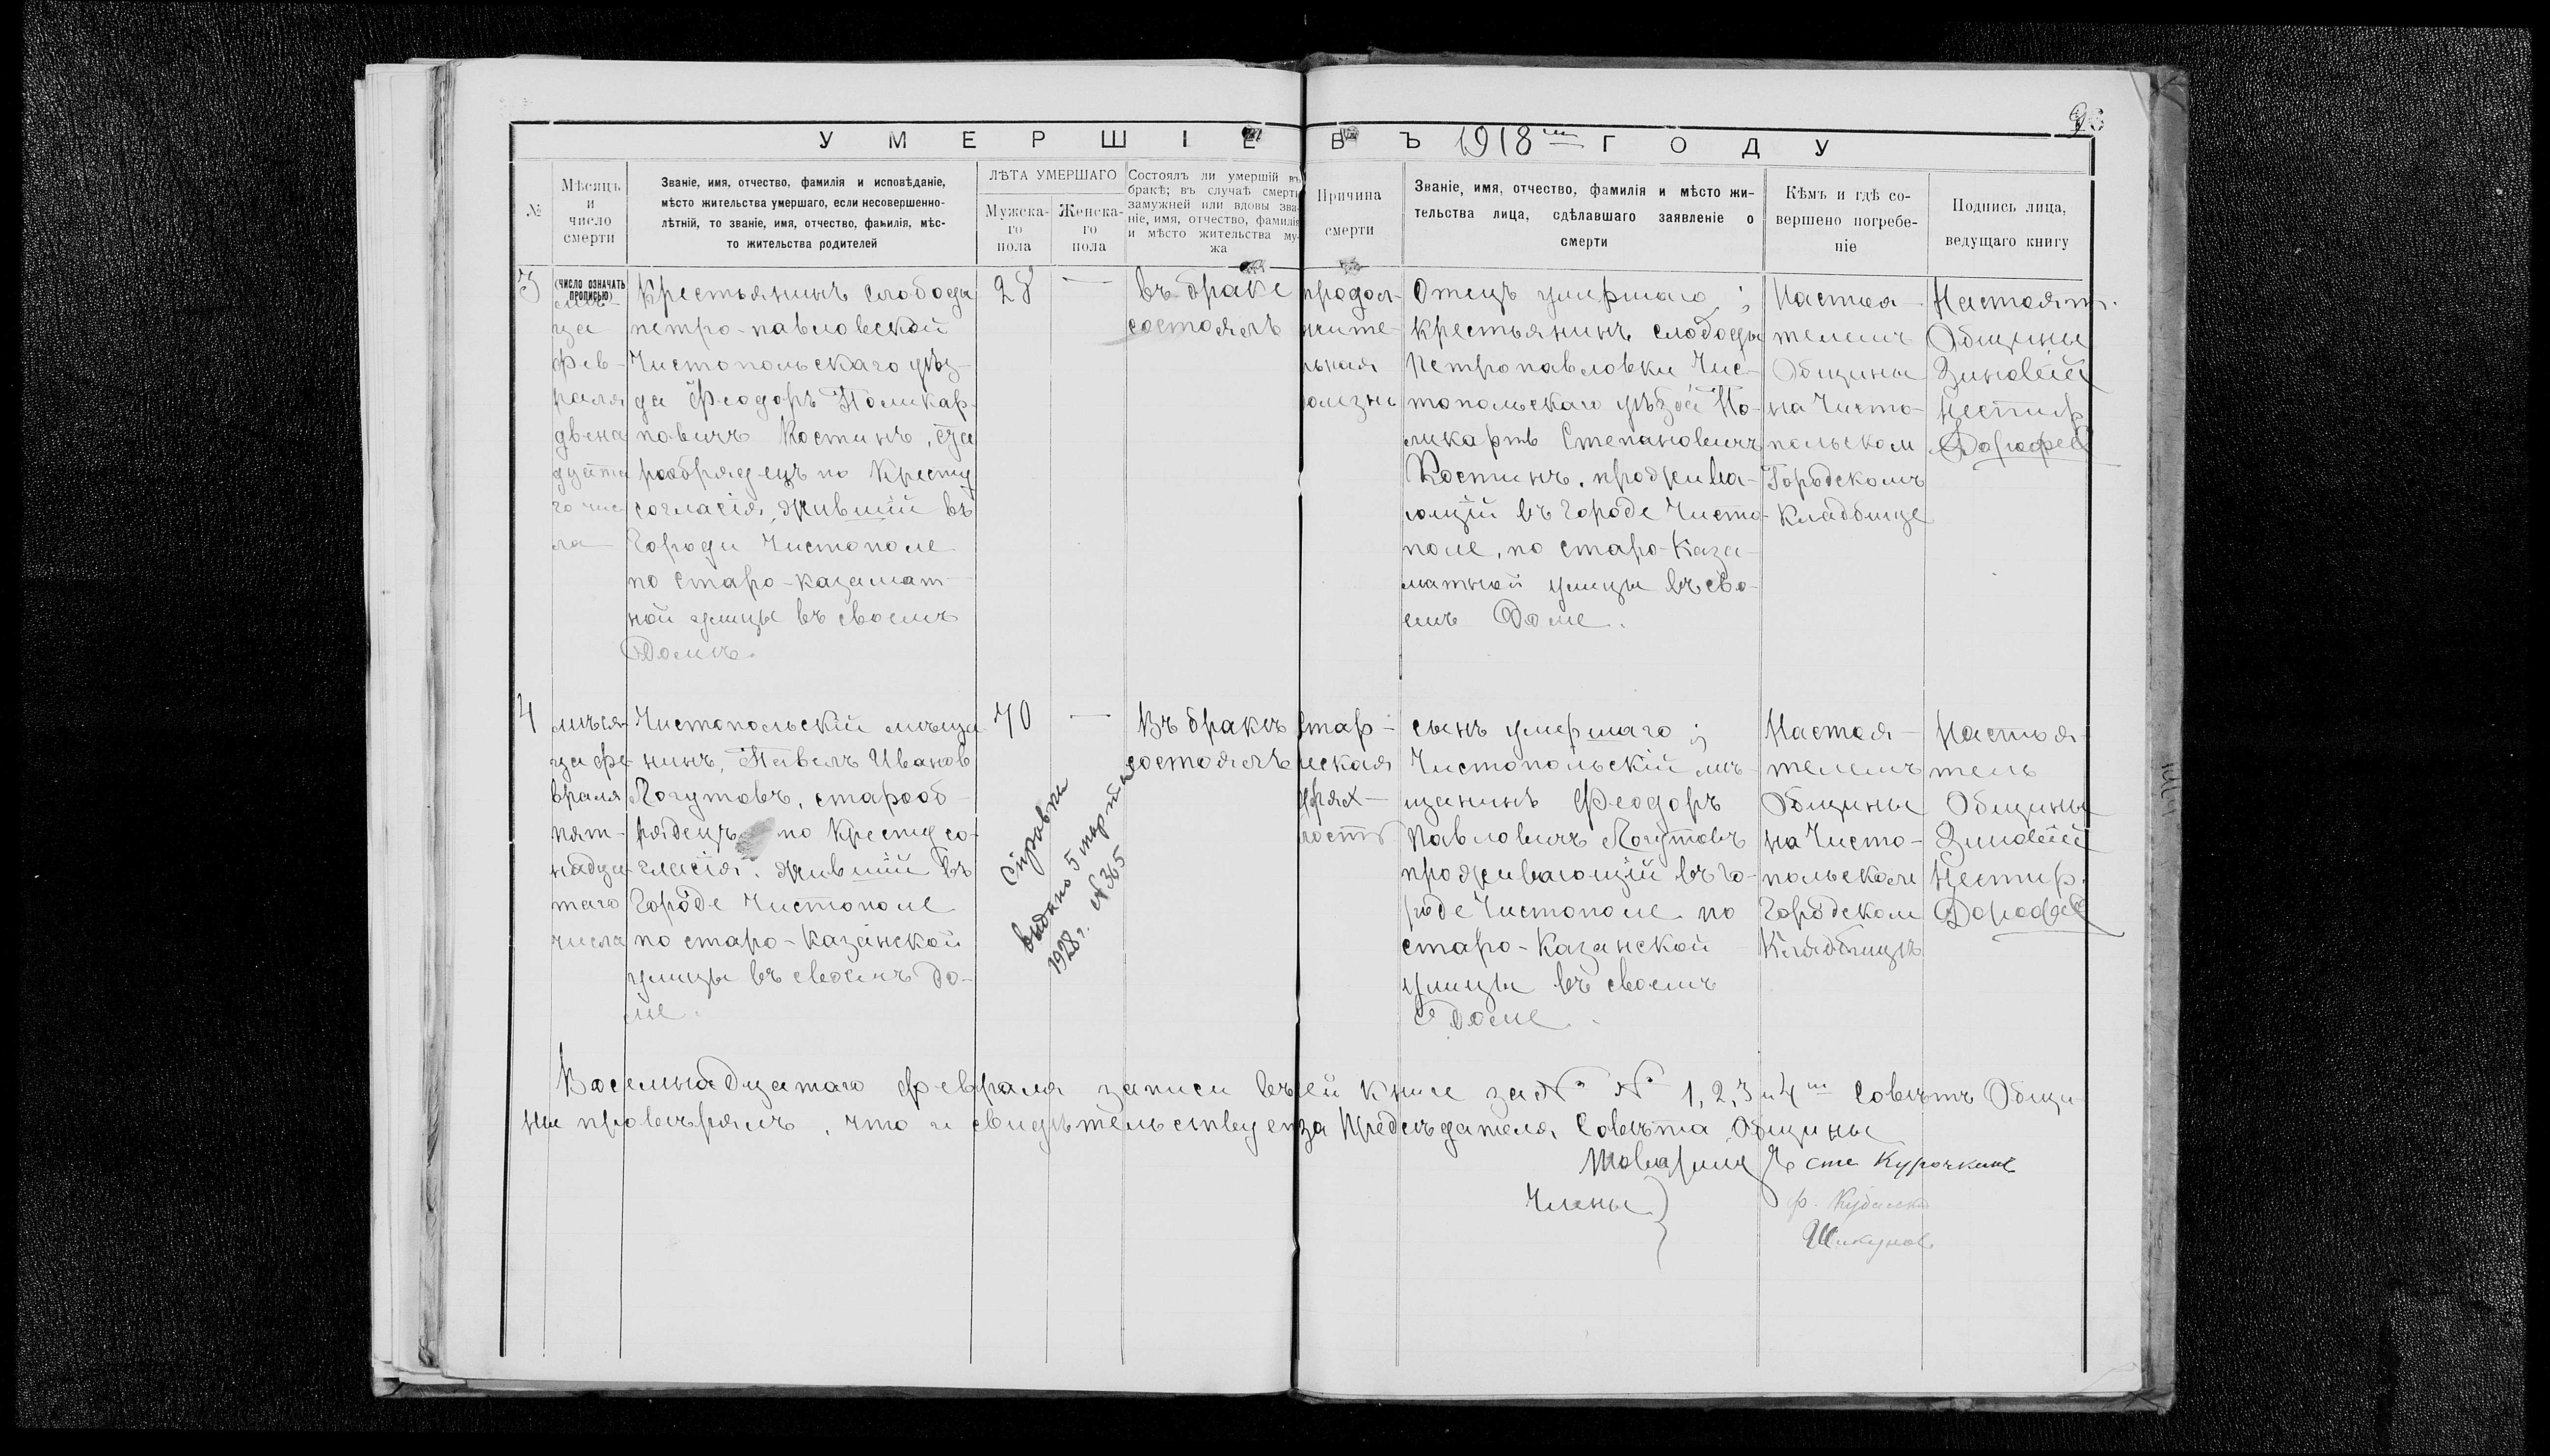 96
УМЕРШІЕ ВЪ 1918 мъ ГОДУ
№
Мѣсяцъ
и
число
смерти
Званіе, имя, отчество, фамилія и исповѣданіе,
мѣсто жительства умершаго, если несовершенно-
лѣтній, то званіе, имя, отчество, фамилія, мѣс-
то жительства родителей
ЛѢТА УМЕРШАГО
Мужска-
го
пола
Женска-
го
пола
Состоялъ ли умершій въ
бракѣ; въ случаѣ смерти
замужней или вдовы зва-
ніе, имя, отчество, фамилія
и мѣсто жительства му-
жа
Причина
смерти
Званіе, имя, отчество, фамилія и мѣсто жи-
тельства лица, сдѣлавшаго заявленіе о
смерти
Кѣмъ и гдѣ со-
вершено погребе-
ніе
Подпись лица,
ведущаго книгу
3
(ЧИСЛО ОЗНАЧАТЬ
ПРОПИСЬЮ)
ца
фев-
раля
двена
дцата
го чис
ла
Крестьянинъ слободы
петро-павловской
Чистопольскаго уѣз-
да Феодоръ Поликар-
повичъ Костинъ, ста
рообрядецъ по Кресту
согласія, живший въ
Городи Чистополе
по старо-казамат-
ной улицы въ своемъ
Домъ.
28
—
въ браке
состоялъ
продол-
жите-
льная
болизнь
Отецъ умершаго;
крестьянинъ слободы
Петропавловки Чис-
топольскаго уѣзда По-
ликарпъ Степановичъ
Костинъ, прожива-
ющій въ городе Чисто-
поле, по старо-Каза-
матной улицы въ сво-
емъ Доме.
Настоя-
телемъ
Общины
на Чисто-
польском
Городскомъ
Кладбище
Настоят.
Общины
Зиновiй
Нестир.
Дорофеев
4
мѣся-
ца фе
враля
пят-
надца
таго
числа
Чистопольскій мѣща-
нинъ, Павелъ Иванов
Логутовъ, старооб-
рядецъ по Кресту со-
гласія, живший въ
Городе Чистополе
по старо-Казанской
улицы въ своемъ до-
ме.
70
—
Справка
выдано 5 марта
1928 г. № 365
Въ бракѣ
состоялъ
стар-
ческая
дрях-
лость
сынъ умершаго;
Чистопольскій мѣ-
щанинъ Феодоръ
Павловичъ Логутовъ
проживающій въ го-
роде Чистополе по
старо-Казанской
улицы въ своемъ
Доме.
Настоя-
телемъ
Общины
на Чисто-
польском
Городском
Кладбищъ
Настоя-
тель
Общины
Зиновiй
Нестир.
Дорофеев
Восемнадцатаго февраля записи въ сей книге за № № 1, 2, 3 и 4 ш Совѣтъ Общи-
ны провѣрялъ, что и свидѣтельствует за Предсѣдателя Совѣта Общины
Товарищ Курочкинъ
Члены
Шикунов